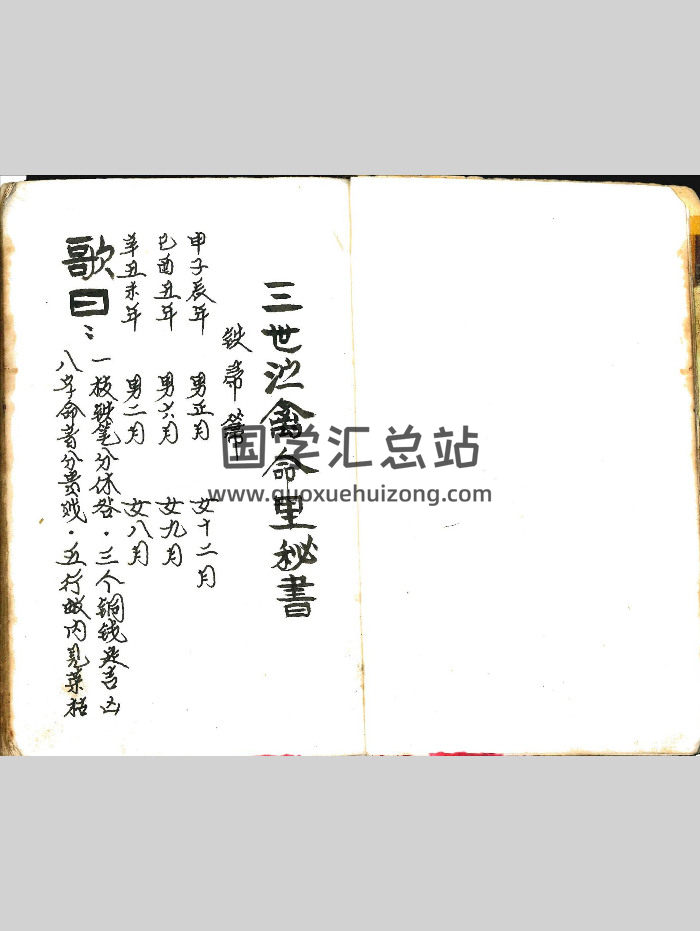 三世禽命里秘書
铁帚
申子辰年 男正月 女十二月
巳酉丑年 男六月 女九月
丑未年 男二月 女八月
歌曰：一枝铁笔分休咎．三个铜钱定吉凶
八字命者分贵贱．五行内见荣枯
国学汇总站
www.guoxuehuizong.com